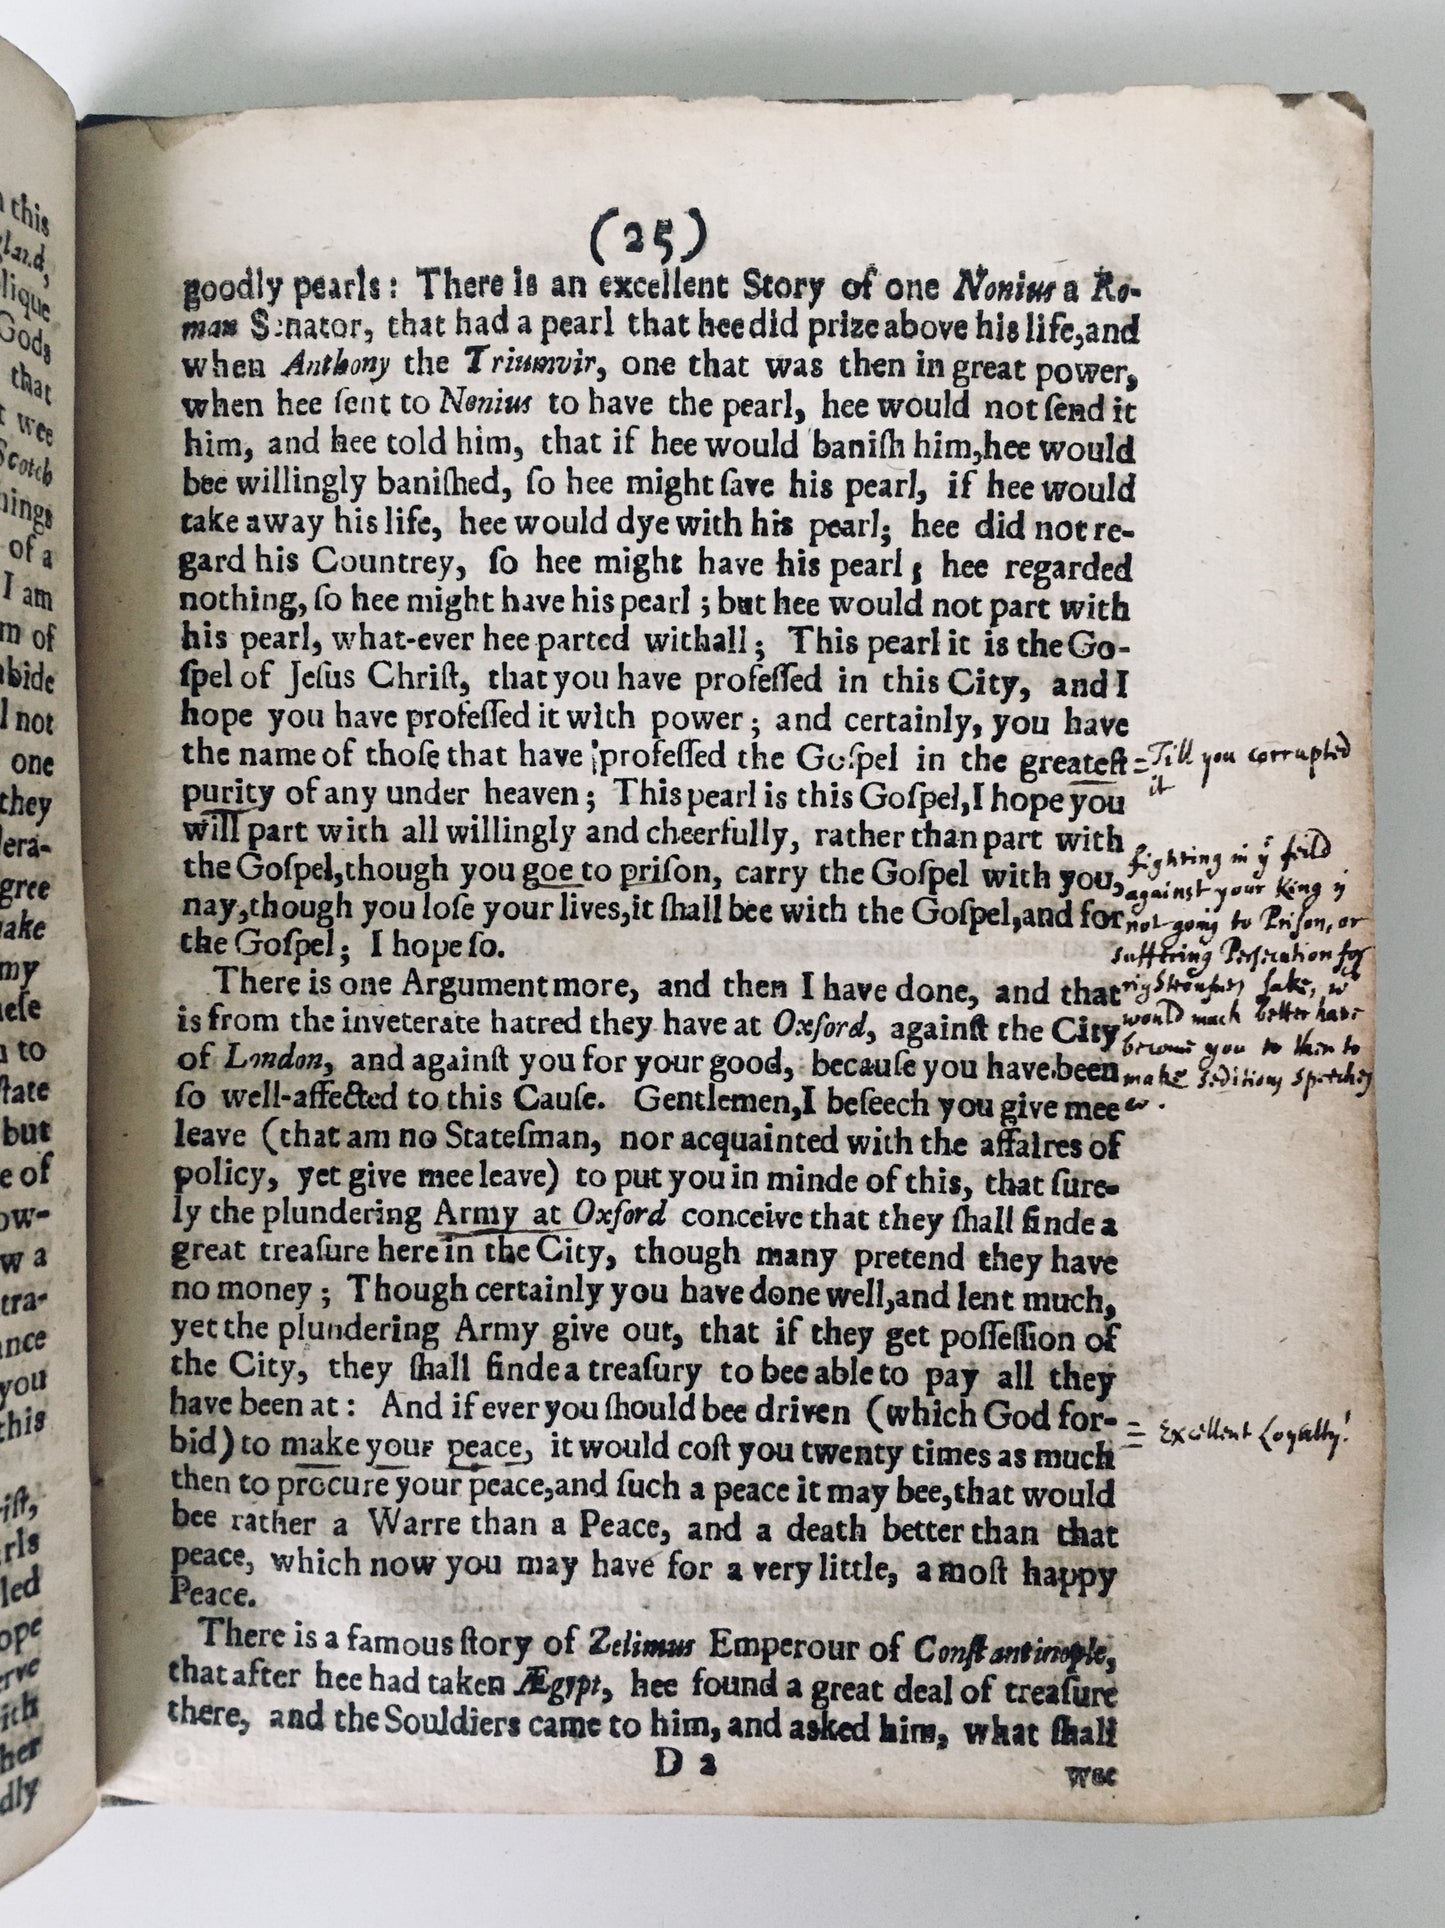 n this
gland,
lique
Gods
that
t wee
Scotch
hings
of a
I am
m of
abide
l not
one
they
lera-
gree
make
my
hese
u to
state
but
e of
ow-
w a
tra-
ance
you
this
rist,
rls
led
ope
erve
ith
her
dly
(25)
goodly pearls: There is an excellent Story of one Nonius a Ro-
man Senator, that had a pearl that hee did prize above his life,and
when Anthony the Triumvir, one that was then in great power,
when hee ſent to Nonius to have the pearl, hee would not ſend it
him, and hee told him, that if hee would baniſh him,hee would
bee willingly baniſhed, ſo hee might ſave his pearl, if hee would
take away his life, hee would dye with his pearl; hee did not re-
gard his Countrey, ſo hee might have his pearl; hee regarded
nothing, ſo hee might have his pearl; but hee would not part with
his pearl, what-ever hee parted withall; This pearl it is the Go-
ſpel of Jeſus Chriſt, that you have profeſſed in this City, and I
hope you have profeſſed it with power; and certainly, you have
the name of thoſe that have profeſſed the Goſpel in the greateſt
purity of any under heaven; This pearl is this Goſpel,I hope you
will part with all willingly and cheerfully, rather than part with
the Goſpel,though you goe to priſon, carry the Goſpel with you,
nay,though you loſe your lives,it ſhall bee with the Goſpel,and for
the Goſpel; I hope ſo.
There is one Argument more, and then I have done, and that
is from the inveterate hatred they have at Oxford, againſt the City
of London, and againſt you for your good, becauſe you have been
ſo well-affected to this Cauſe. Gentlemen,I beſeech you give mee
leave (that am no Stateſman, nor acquainted with the affaires of
policy, yet give mee leave) to put you in minde of this, that ſure-
ly the plundering Army at Oxford conceive that they ſhall finde a
great treaſure here in the City, though many pretend they have
no money; Though certainly you have done well,and lent much,
yet the plundering Army give out, that if they get poſſeſſion of
the City, they ſhall finde a treaſury to bee able to pay all they
have been at: And if ever you ſhould bee driven (which God for-
bid) to make your peace, it would coſt you twenty times as much
then to procure your peace,and ſuch a peace it may bee,that would
bee rather a Warre than a Peace, and a death better than that
peace, which now you may have for a very little, a moſt happy
Peace.
There is a famous ſtory of Zelimus Emperour of Conſtantinople,
that after hee had taken Ægypt, hee found a great deal of treaſure
there, and the Souldiers came to him, and asked him, what ſhall
D 2
wee
=Till you corrupted
it
fighting in ỹ feild
against your King is
not going to Prison, or
suffering Persecution for
righteousness sake, wch
would much better have
become you to then to
make Seditious Speeches
= Excellent Loyalty!